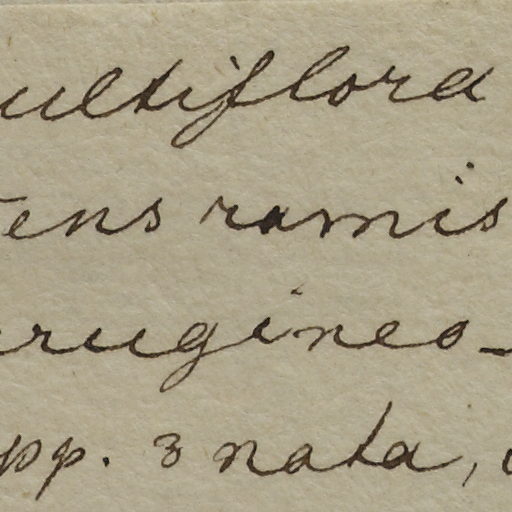 ultiflora
tens ramis
rrugineo-
pp. 3 nata,